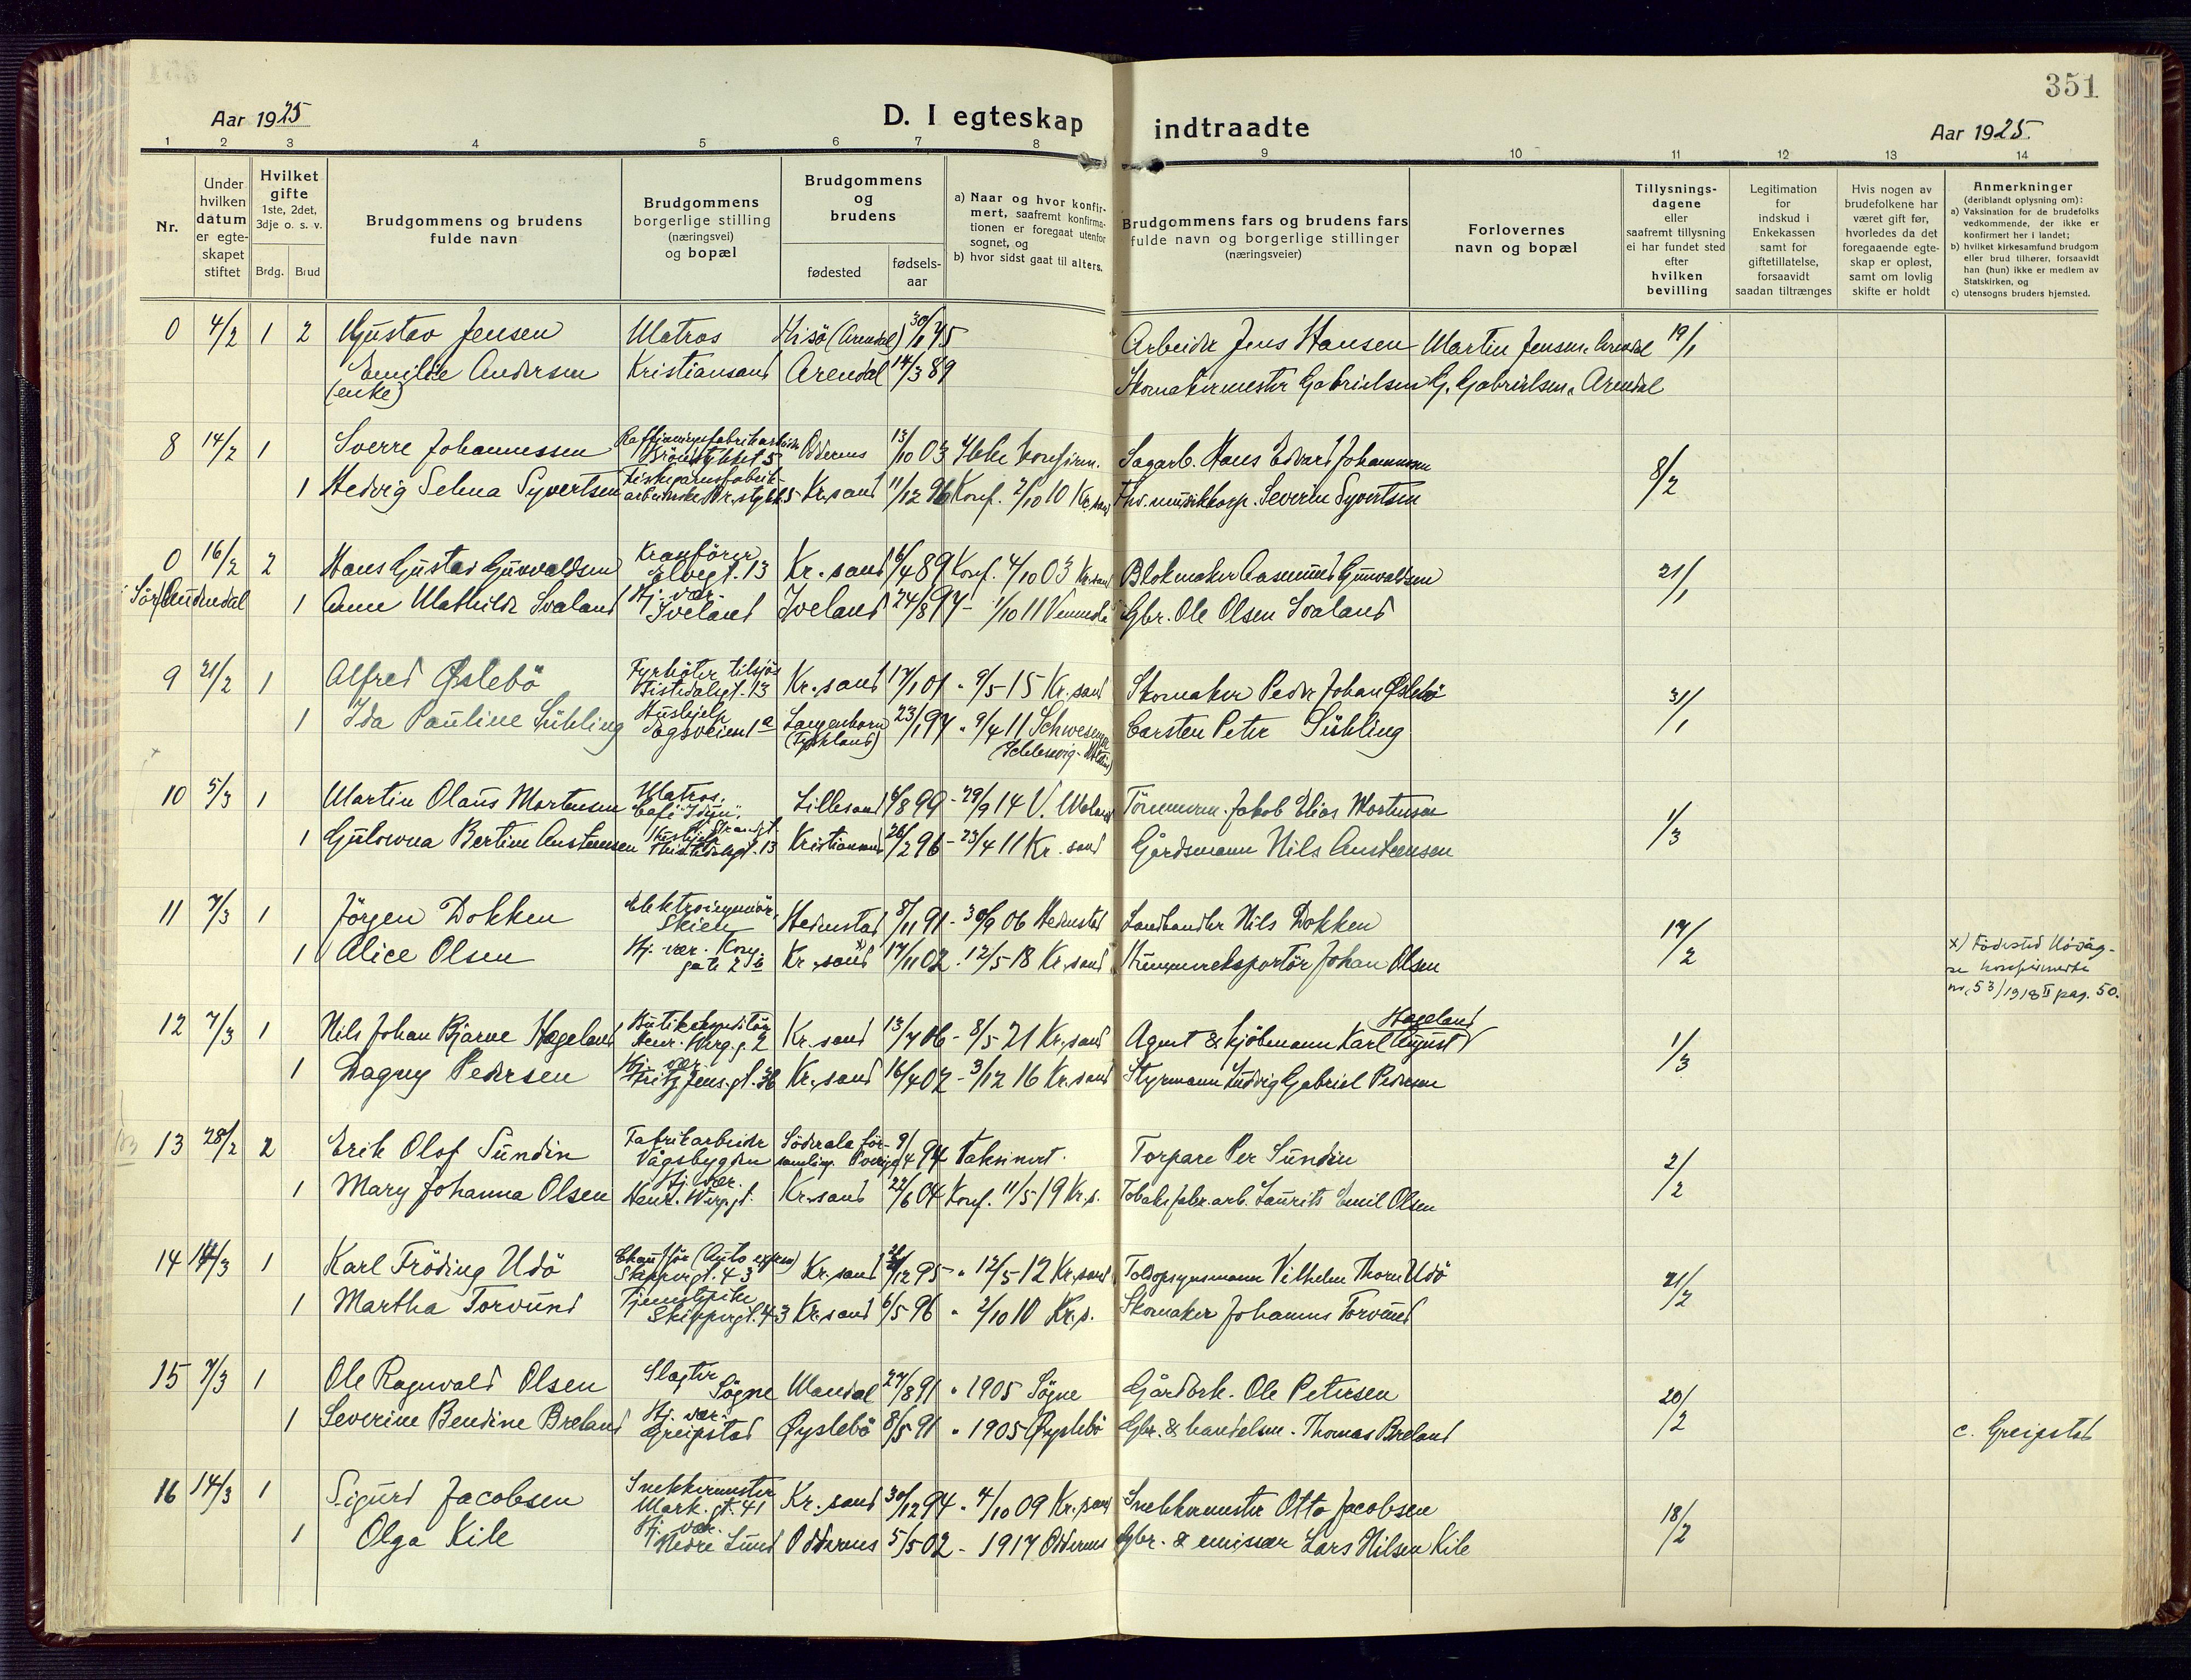 351
Aar 1925
D. I egteskap indtraadte
Aar 1925.
1 2 3 4 5 6 7 8 9 10 11 12 13 14
Nr.
Under hvilken datum er egteskapet stiftet
Hvilket gifte
1ste, 2det, 3dje o. s. v.
Brdg. Brud
Brudgommens og brudens fulde navn
Brudgommens borgerlige stilling (næringsvei) og bopæl
Brudgommens og brudens
fødested
fødsels-aar
a) Naar og hvor konfirmert, saafremt konfirmationen er foregaat utenfor sognet, og
b) hvor sidst gaat til alters.
Brudgommens fars og brudens fars fulde navn og borgerlige stillinger (næringsveier)
Forlovernes navn og bopæl
Tillysningsdagene eller saafremt tillysning ei har fundet sted efter hvilken bevilling
Legitimation for indskud i Enkekassen samt for giftetillatelse, forsaavidt saadan tiltrænges
Hvis nogen av brudefolkene har været gift før, hvorledes da det foregaaende egteskap er opløst, samt om lovlig skifte er holdt
Anmerkninger
(deriblandt oplysning om):
a) Vaksination for de brudefolks vedkommende, der ikke er konfirmert her i landet;
b) hvilket kirkesamfund brudgom eller brud tilhører, forsaavidt han (hun) ikke er medlem av Statskirken, og
c) utensogns bruders hjemsted.
0 4/2 1 2 Gustav Jensen Matros Hisö (Arendal) Arbeider Jens Hansen Martin Jensen, Arendal 19/1
Emilie Andersen Kristiansand Arendal 14/3 89 Skomakermester Gabrielsen G. Gabrielsen, Arendal
(enke)
8 14/2 1 Sverre Johannessen Oddernes 13/10 03 Ikke konfirm. Sagarb. Hans Edvard Johannessen 8/2
1 Hedvig Selma Syvertsen Kr.sand 11/12 96 Konf. 2/10 10 Kr.sand Severin Syvertsen
0 16/2 2 Hans Gustav Gunvaldsen Kranförer Elvegt. 13 Kr.sand 6/4 89 Konf. 4/10 03 Kr.sand Blokmaker Aasmund Gunvaldsen 21/1
Sör Audnedal 1 Anne Mathilde Svaland Hj. vær. Iveland Iveland 24/8 97 - 1/10 11 Vennesla Gbr. Ole Olsen Svaland
9 21/2 1 Alfred Øslebö Fyrböter tilsjös Tistedalsgt. 13 Kr.sand 17/1 01 " 9/5 15 Kr.sand Skomaker Peder Johan Øslebö 31/1
1 Ida Pauline Sühling Hushjelp Egsveien 1a Langenhorn (Tyskland) 23/1 97 " 9/4 11 (Schleswig-Holstein) Carsten Peter Sühling
10 5/3 1 Martin Olaus Mortensen Matros. Café "Idun", Lillesand 4/8 99 - 29/9 14 V. Moland Tömmerm. Jakob Elias Mortensen 1/3
1 Gulowna Bertine Austensen Hushjelp Thistedalsgt. 13 Kristiansand 26/2 96 - 23/4 11 Kr.sand Gårdsmann Nils Austensen
11 7/3 1 Jörgen Dokken Elektroingeniör, Skien Hedenstad 8/11 91 - 30/9 06 Hedenstad Landhandler Nils Dokken 17/2
1 Alice Olsen Hj. vær. Kong. gate Kr.sand x) 17/11 02 - 12/5 18 Kr.sand Hummereksportör Johan Olsen
x) Födested Hövåg - se konfirmerte nr. 53/1918 II pag. 50.
12 7/3 1 Nils Johan Bjarne Hægeland Butikekspeditör Henr. Werg. g. 2 Kr.sand 13/7 06 - 8/5 21 Kr.sand Agent & kjöbmann Karl August Hægeland 1/3
1 Dagny Pedersen Hj. vær. Fritz Jens. gt. 36 Kr.sand 16/4 02 - 3/12 16 Kr.sand Styrmann Ludvig Gabriel Pedersen
13 28/2 2 Erik Olof Sundin Fabrikarbeider Vågsbygden Söderala församling. Sverige 9/4 94 Vaksinert. Torpare Per Sundin 2/2
1 Mary Johanna Olsen Hj. vær. Henr. Werg. gt. Kr.sand 22/6 04 Konf. 11/5 19 Kr.s. Tobaksfabr.arb. Laurits Emil Olsen
14 14/3 1 Karl Fröding Udö Chaufför (Auto expres) Skippergt. 43 Kr.sand 12 95 " 12/5 12 Kr.sand Toldopsynsmann Vilhelm Thorn Udö 21/2
1 Martha Torvund Tjenestepike Skippergt. 43 Kr.sand 6/5 96 " 2/10 10 Kr.s. Skomaker Johannes Torvund
15 7/3 1 Ole Ragnvald Olsen Slagter Sögne Mandal 27/8 91 " 1905 Sögne Gårdbrk. Ole Petersen 20/2
1 Severine Bendine Breland Hj. vær. Greipstad Øyslebö 8/5 91 " 1905 Øyslebö Gbr. & handelsm. Thomas Breland c. Greipstad
16 14/3 1 Sigurd Jacobsen Snekkermester Mark. gt. 41 Kr.sand 30/12 94 " 4/10 09 Kr.sand Snekkermester Otto Jacobsen 18/2
1 Olga Kile Hj. vær. Nedre Lund Oddernes 5/5 02 - 1917 Oddernes Gbr. & emissær Lars Nilsen Kile